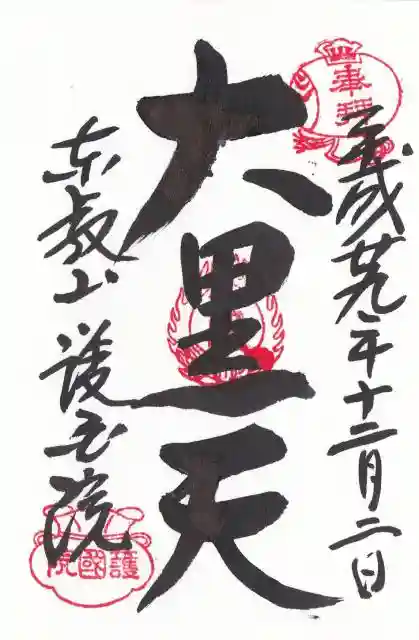 奉拝
平成廿九年十二月二日
大黒天
東叡山 護国院
護國院